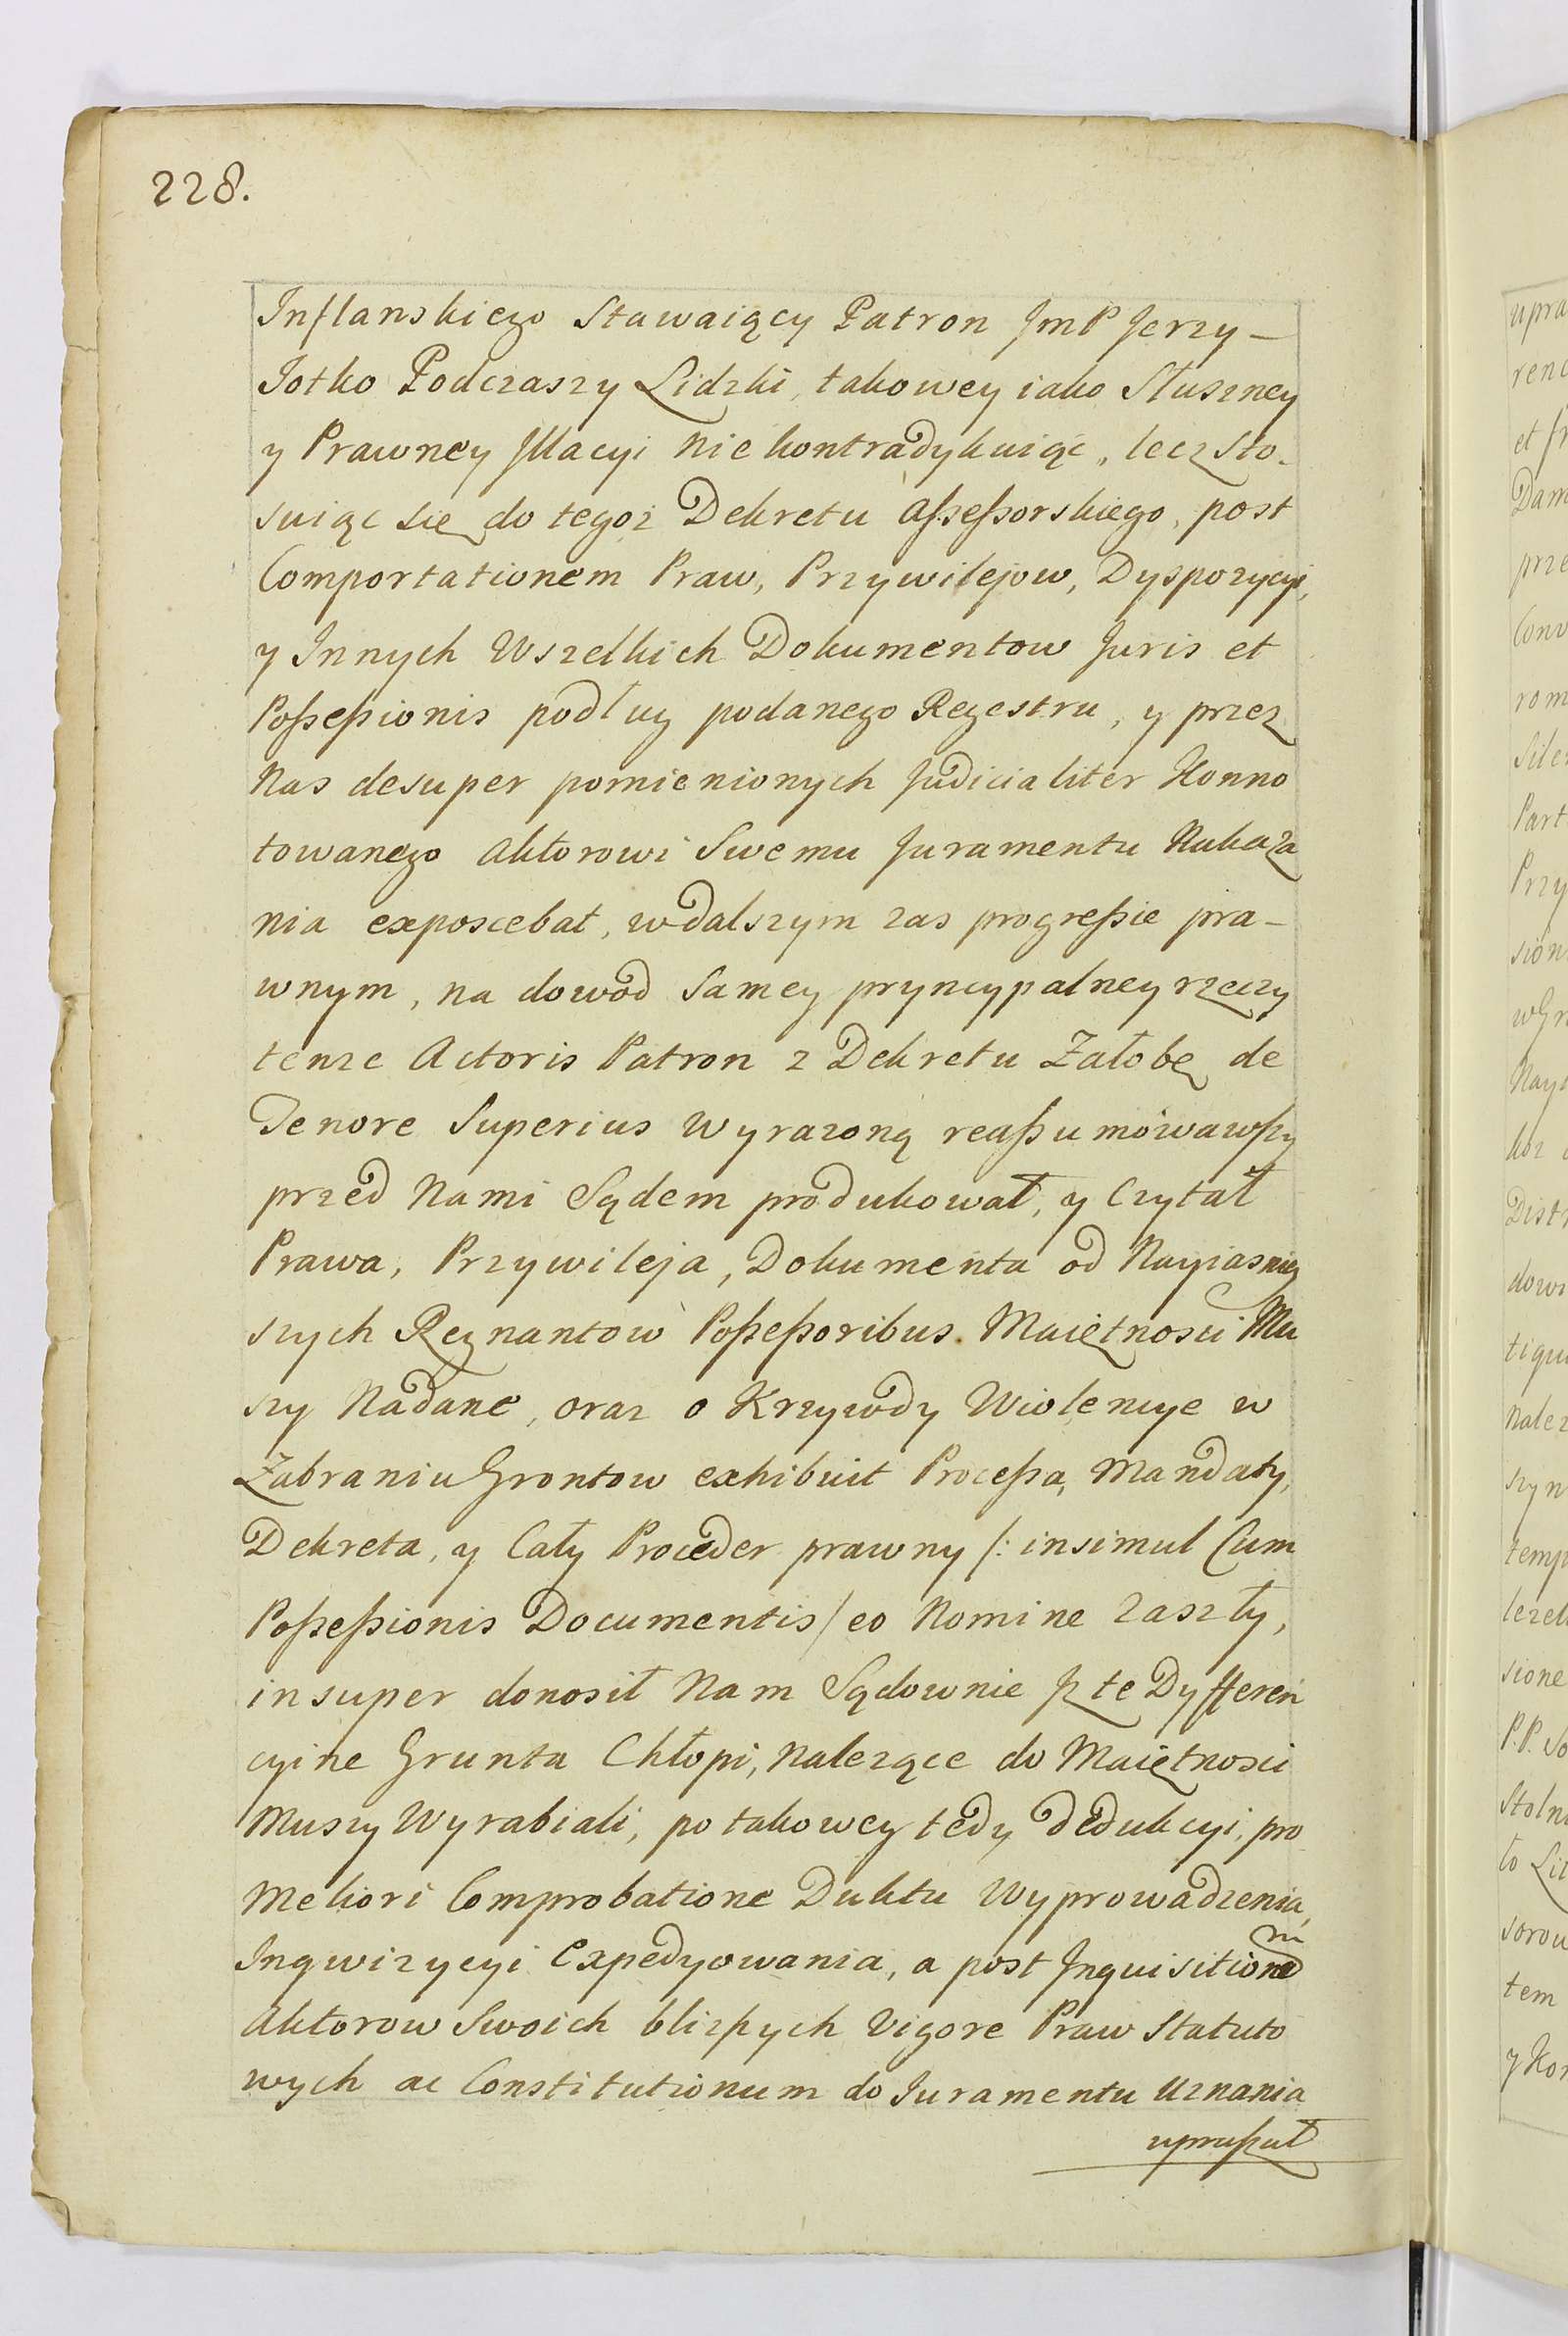 228.
Inflanskiego Stawaiący Patron JmP Jerzy —
Jotko Podczaszy Lidzki, takowey iako Słuszney
y Prawney Jllacyi nie kontradykuiąc, lecz sto-
suiąc się do tegoż Dekretu aßeßorskiego, post
Comportationem Praw, Przywilejow, Dyspozycyi,
y Innych Wszelkich Dokumentow Juris et
Poßeßionis podług podanego Regestru, y przez
Nas desuper pomienionych Judicialiter Konno
towanego Aktorowi Swemu Juramentu Nakaza
nia exposcebat, w dalszym zas progreßie pra-
wnym, na dowod samey pryncypalney rzeczy
tenze Actoris Patron z Dekretu Załobę de
Tenore Superius Wyrazoną reaßumowawßy
przed Nami Sądem produkował, y Czytał
Prawa, Przywileja, Dokumenta od Nayiasniey
szych Regnantow Poßeßoribus Maiętnosci Mu
szy Nadane, oraz o Krzywdy Wiolencye w
Zabraniu Grontow exhibuit Proceßa, Mandaty,
Dekreta, y Cały Proceder prawny /: insimul Cum
Poßeßionis Documentis / eo Nomine Zaszły,
insuper donosił Nam Sądownie Jz te Dyfferen
cyine Grunta Chłopi, Nalezące do Maiętnosci
Muszy Wyrabiali, po takowey tedy dedukcyi, pro
Meliori Comprobatione Duktu Wyprowadzenia,
Inqwizycyi Expedyowania, a post Inquisitionem
Aktorow Swoich blizßych Vigore Praw Statuto
wych ac Constitutionum do Juramentu Uznania
upraßał
upra
renc
et
Dam
prze
Conv
rom
Silen
Part
Przy
sion
w Gr
Nay
Distr
dow
tiqu
Nalez
szyn
temp
sione
P.P. So
Stoln
to Lit
sorow
tem
y Kon